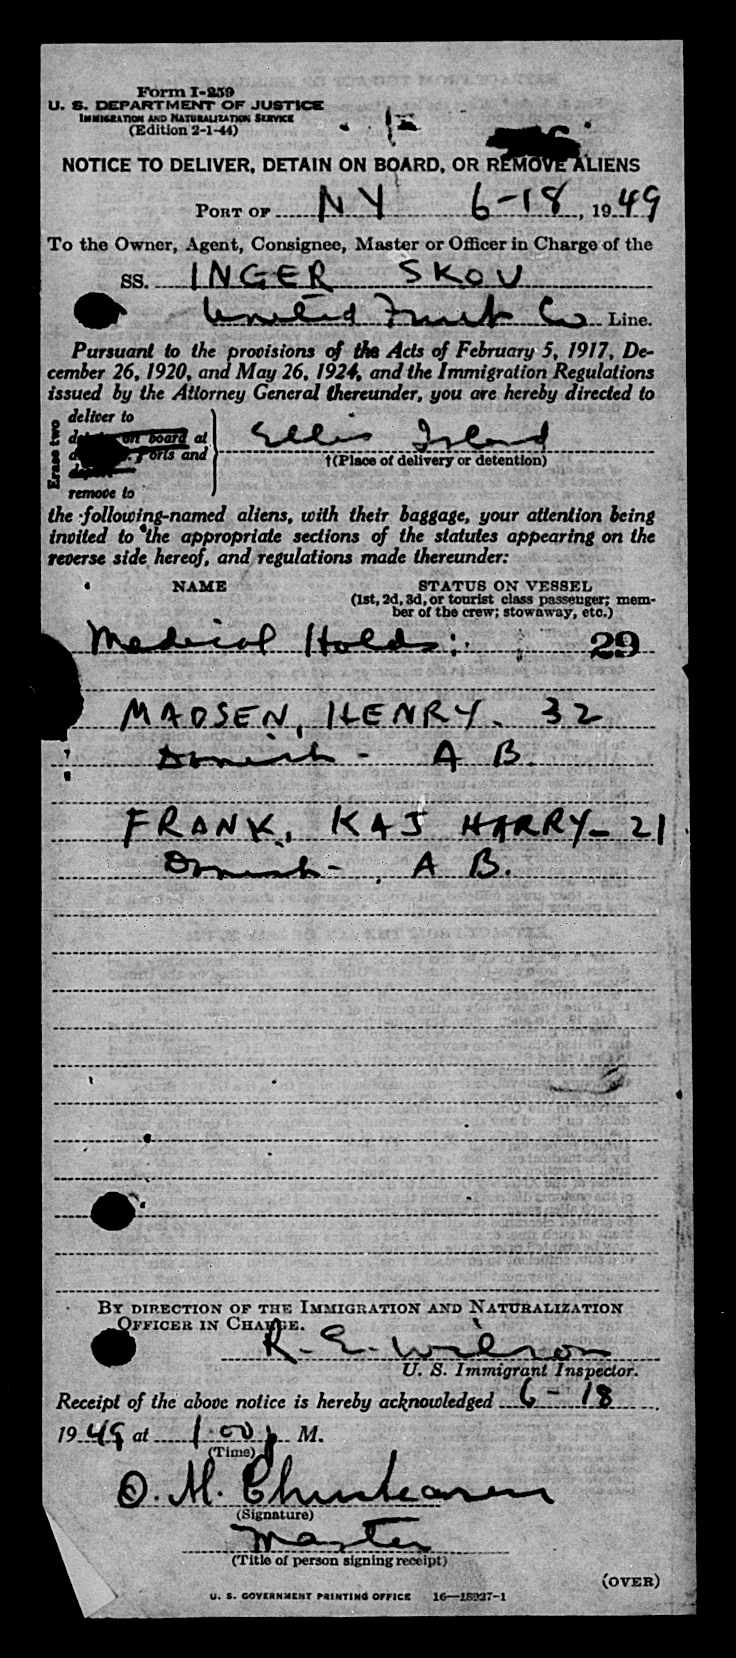 Form I-259
U. S. DEPARTMENT OF JUSTICE
IMMIGRATION AND NATURALIZATION SERVICE
(Edition 2-1-44)
NOTICE TO DELIVER, DETAIN ON BOARD, OR REMOVE ALIENS
PORT OF NY 6-18, 1949
To the Owner, Agent, Consignee, Master or Officer in Charge of the
SS. INGER SKOU
United Fruit Co Line.
Pursuant to the provisions of the Acts of February 5, 1917, De-
cember 26, 1920, and May 26, 1924, and the Immigration Regulations
issued by the Attorney General thereunder, you are hereby directed to
Erase two
deliver to
on board at
Ellis Island
orts and
†(Place of delivery or detention)
remove to
the following-named aliens, with their baggage, your attention being
invited to the appropriate sections of the statutes appearing on the
reverse side hereof, and regulations made thereunder:
NAME STATUS ON VESSEL
(1st, 2d, 3d, or tourist class passenger; mem-
ber of the crew; stowaway, etc.)
Medical Holds: 29
MADSEN, HENRY. 32
Danish - A B.
FRANK, KAJ HARRY - 21
Danish - A B.
BY DIRECTION OF THE IMMIGRATION AND NATURALIZATION
OFFICER IN CHARGE.
R. E. Wilson
U. S. Immigrant Inspector.
Receipt of the above notice is hereby acknowledged 6-18
1949 at 1:00 p M.
(Time)
O. M. Christensen
(Signature)
Master
(Title of person signing receipt)
(OVER)
U. S. GOVERNMENT PRINTING OFFICE 16—18927-1